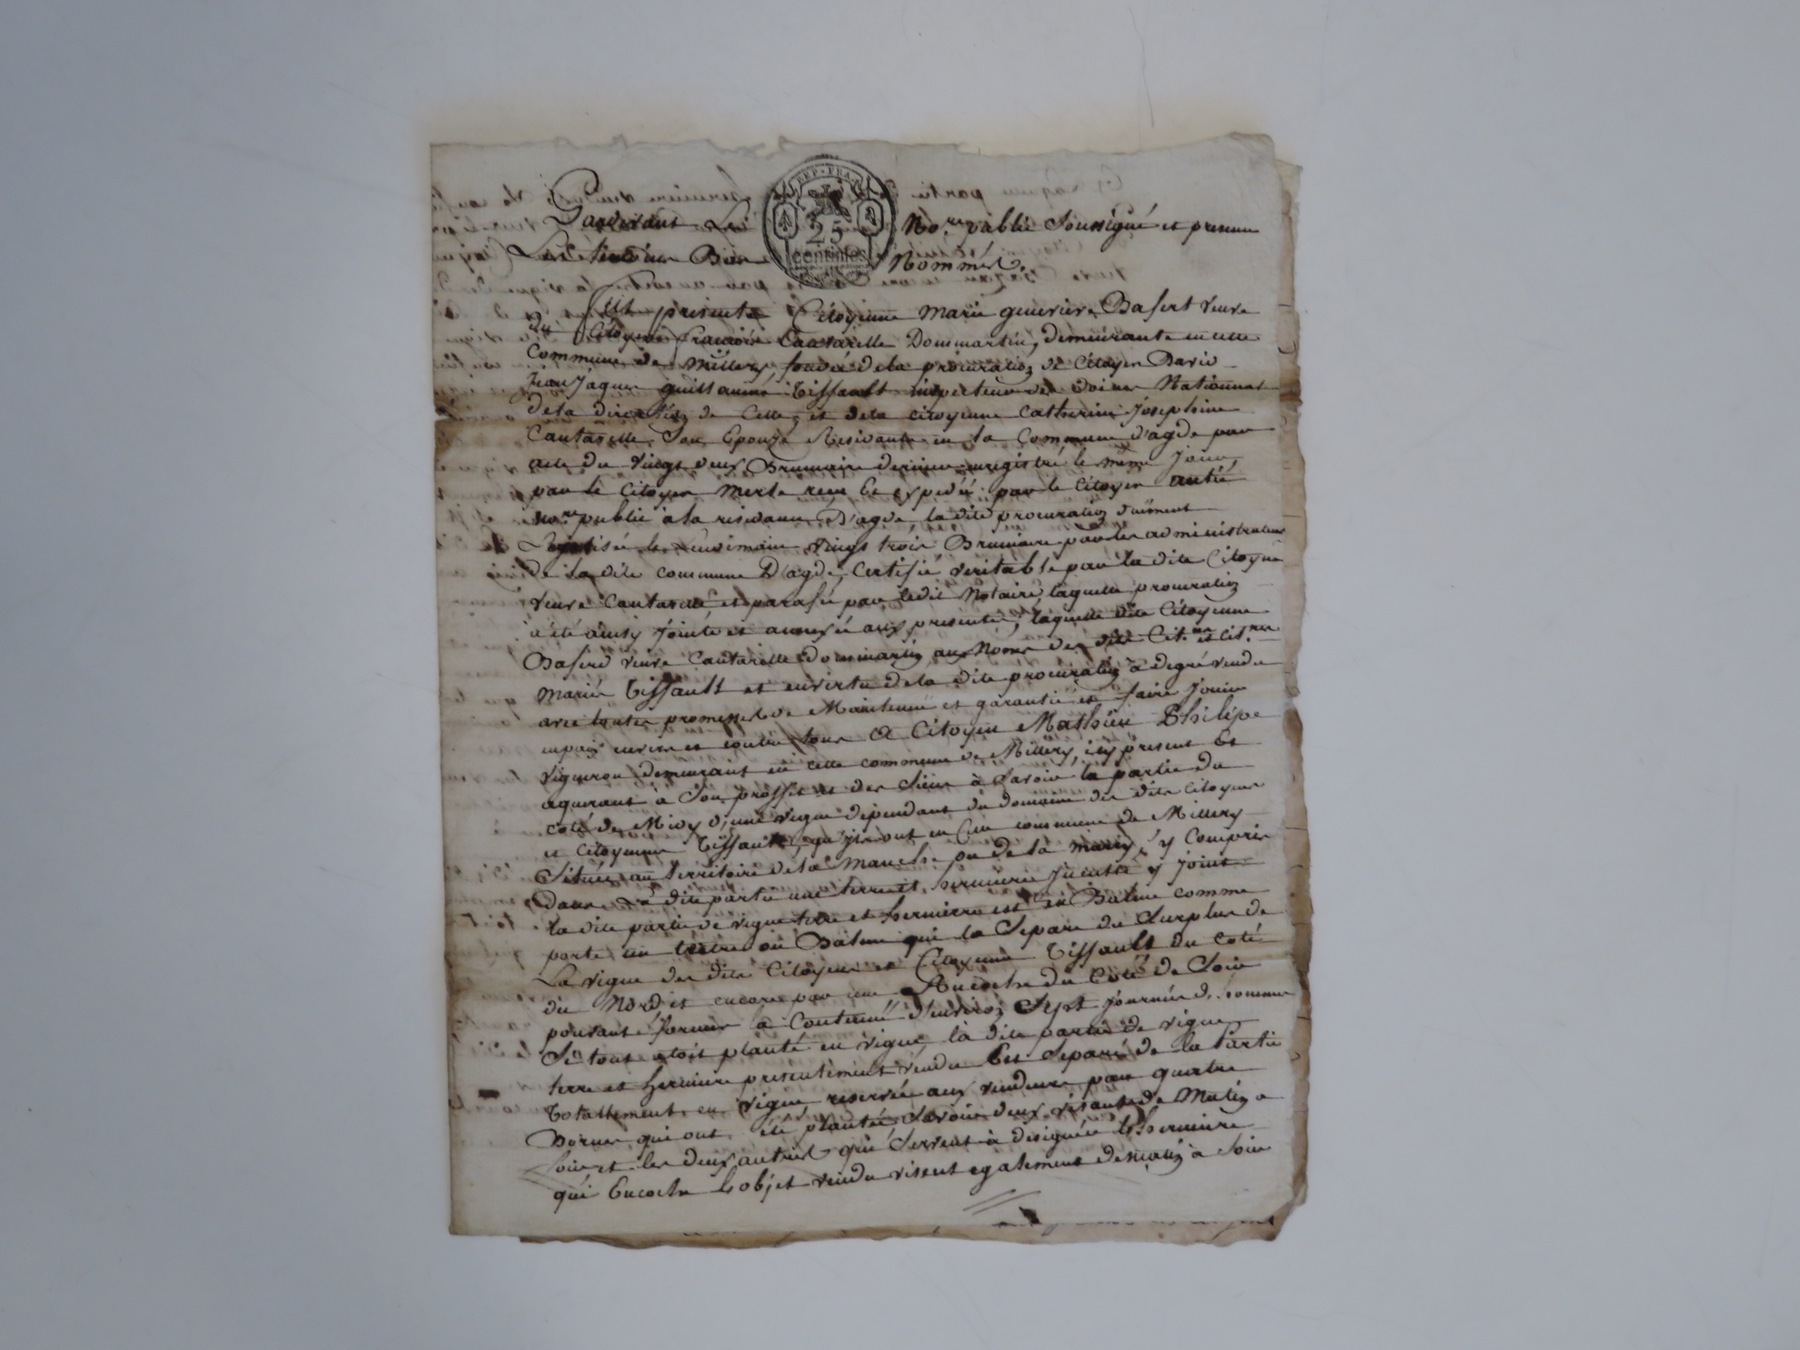 Pardevant Le
REP. FRA.
25
centimes
No.re public Soussigné et presence
Les Temoins Bien Nommés.
fut presente Citoyenne Marie genevieve Basset veuve
Citoyen François Cantarelle Dommartin, demeurante en cette
Commune de Millery, fondé de la procuration de Citoyen David
Jean Jaques guillaume Tissault inspecteur des Nationnal
de la direction de Cette, et de la citoyenne Catherine Josephine
Cantarelle Son Epouze Residante en la Commune d'agde par
acte du vingt deux Brumaire dernier enregistré le même Jour
par le Citoyen Merle reçu Et expedié par le Citoyen
no.re public a la residance D'agde, la dite procuration duëment
Legalisée le Lendemain vingt trois Brumaire par les administrateurs
de la dite commune D'agde, Certifié veritable par la dite Citoyne
veuve Cantarelle et parafée par ledit Notaire, laquelle procuration
a été ainsy Jointe et annexée aux presentes, laquelle dite Citoyenne
Basset veuve Cantarelle dommartin aux Noms des dits Cit.en et Cit.nne
mariés Tissault et en vertu de la dite procuration a degré vendu
avec toutes promesses de Maintenue et garantie et faire Jouir
en paix envers et contre tous a Citoyen Mathieu Philipe
vigneron demeurant en cette commune de Millery, icy present Et
aquerant a Son proffit et des Siens à Savoir la partie du
coté de Midy d'une vigne dépendant du domaine des dits Citoyen
et Citoyenne Tissault, qu'ils ont en cette commune de Millery
Située au territoire de la Manche ou de la , y Compris
dans La dite partie une terre et hermiere y Joint
la dite partie de vigne terre et hermiere est en Balme comme
porte un tertre ou Balme qui la Separe du Surplus de
La vigne des dits Citoyen et Citoyenne Tissault du coté
du Nord et encore par une Encoche du Coté de Soir
pouvant former a Contenüe d'environ Sept Journées d'homme
Si tout etoit planté en vigne, la dite partie de vigne
terre et hermiere presentement vendu Est Separé de la Partie
totallement en vigne reservée aux vendeurs par quatre
Bornes qui ont été plantée Savoir deux visante de Matin a
Soir et les deux autres qui Servent à designée L'hermiere
qui Encoche L'objet vendu visent egalement de matin à Soir